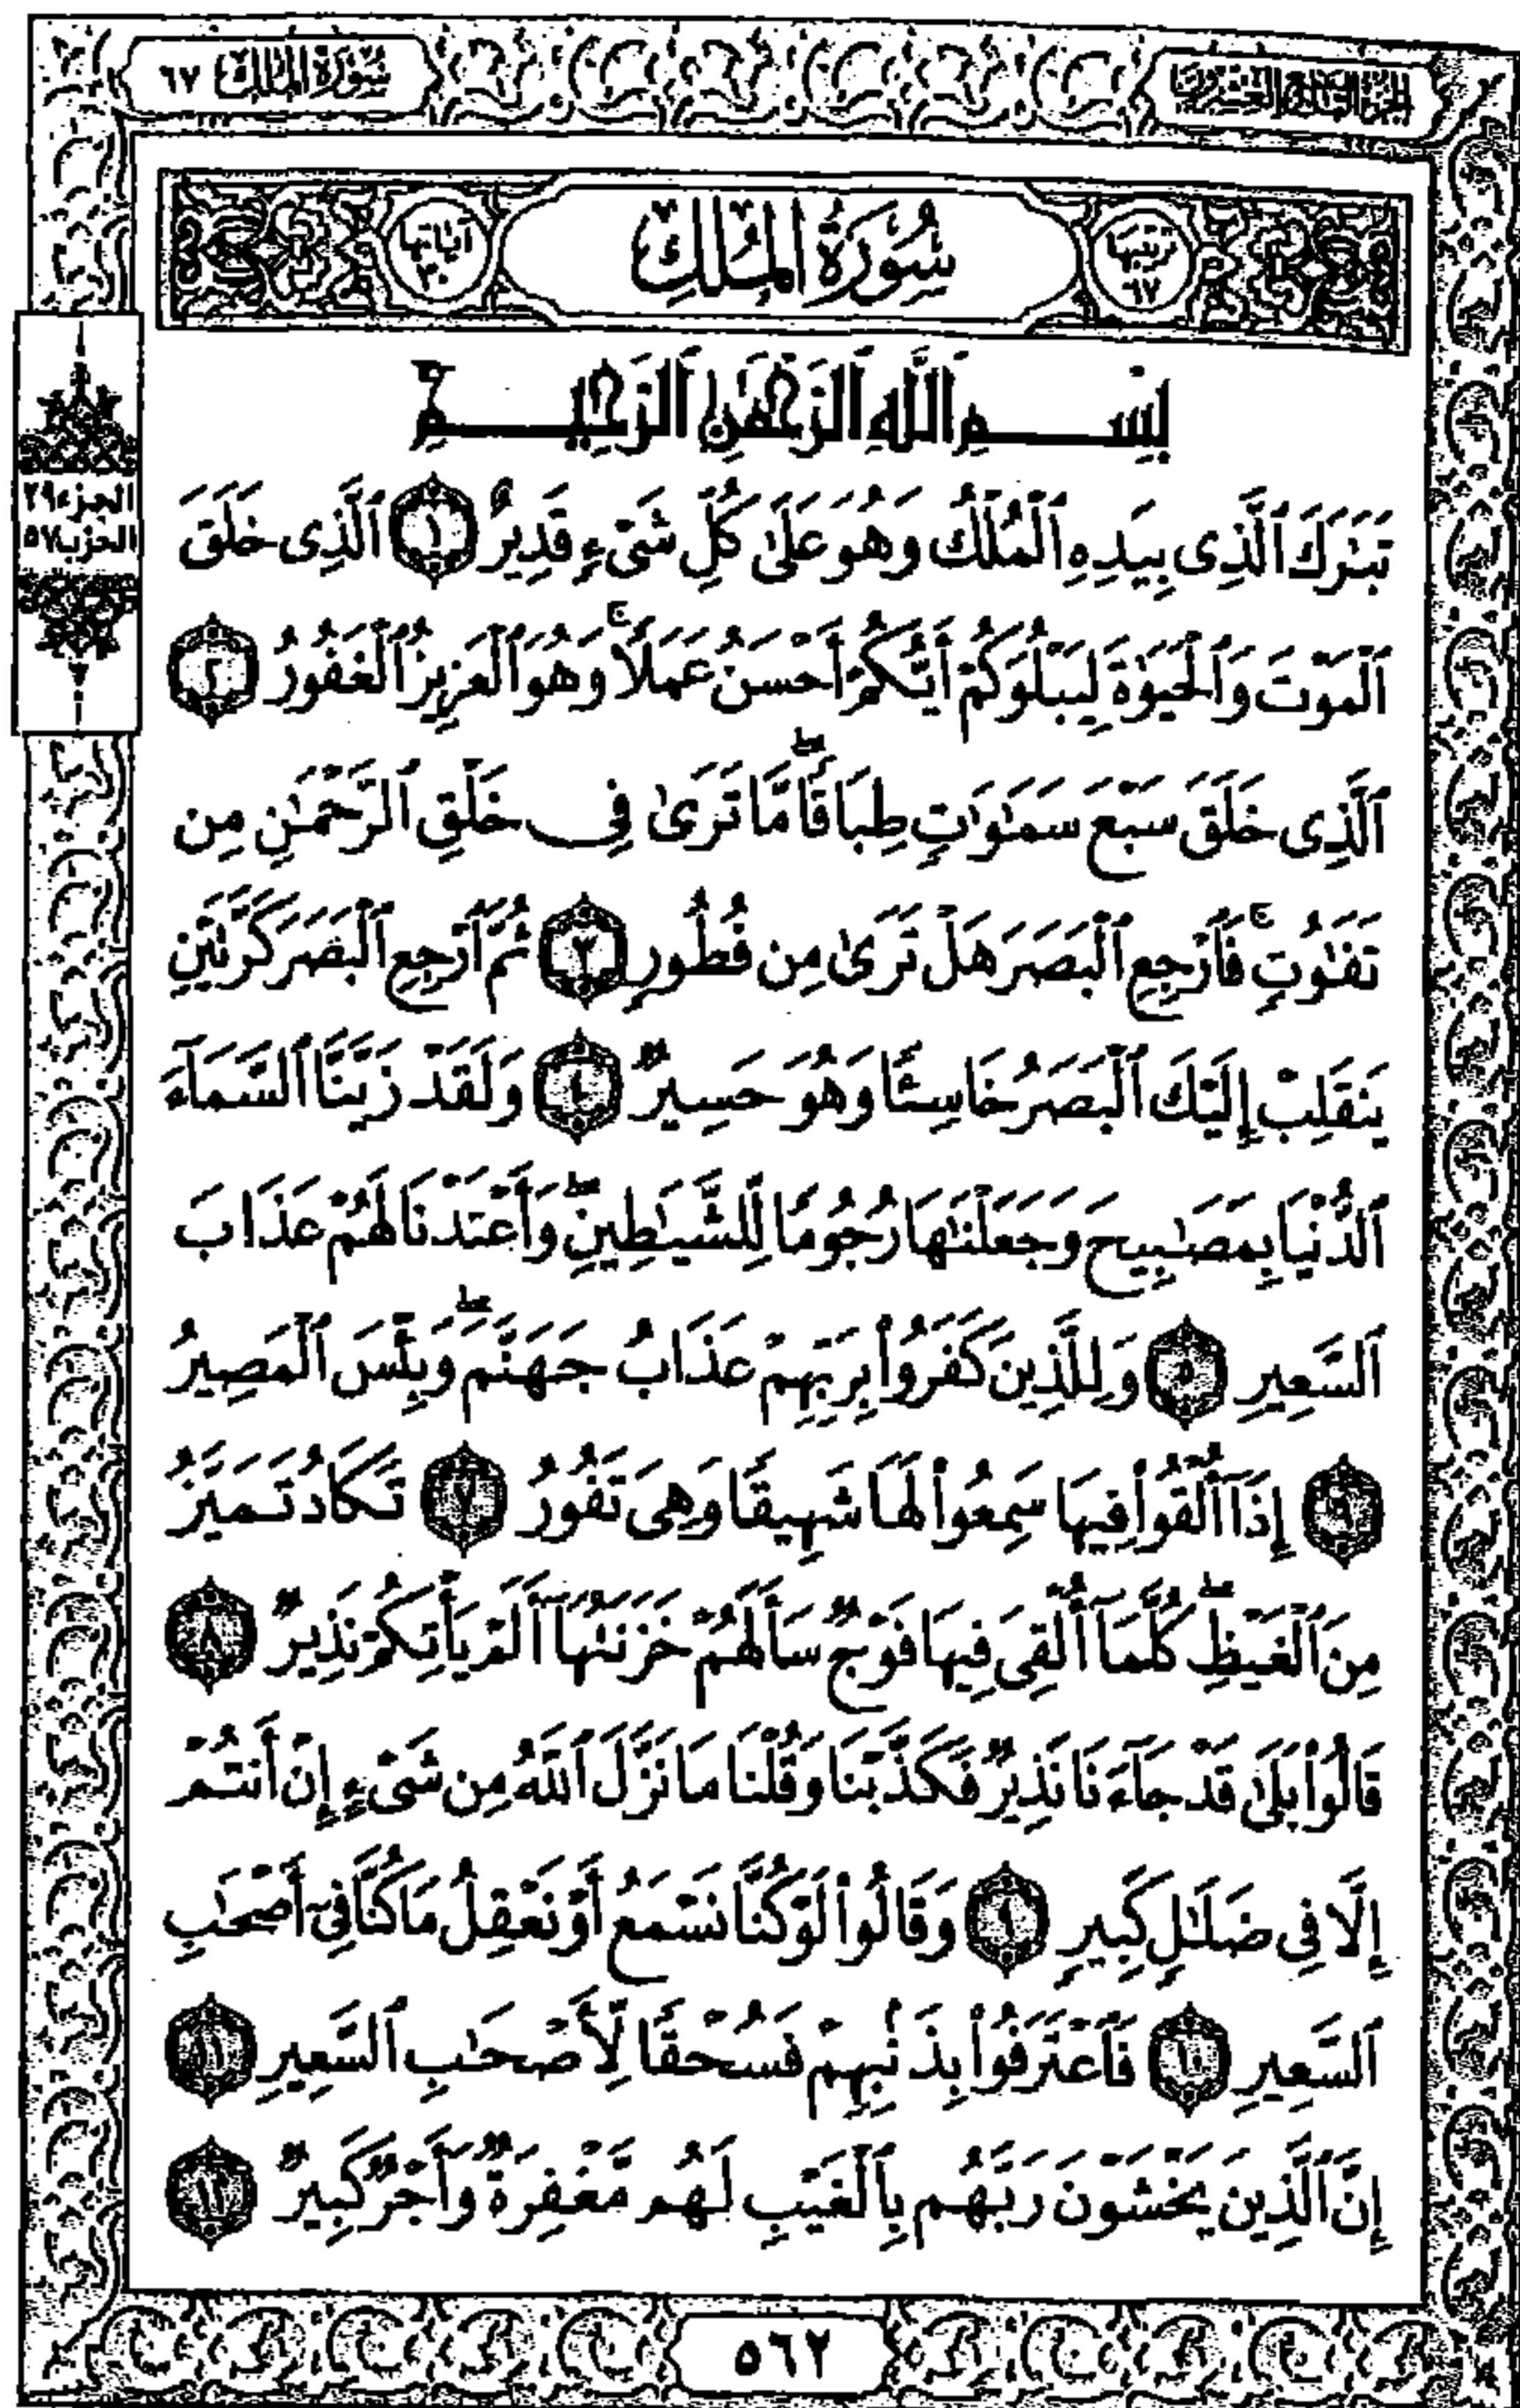 الجزء التاسع والعشرون
سورة الملك ٦٧
ترتيبها ٦٧
سُورَةُ الْمُلْكِ
آياتها ٣٠
الجزء ٢٩
الحزب ٥٧
بِسْمِ ٱللَّهِ ٱلرَّحْمَٰنِ ٱلرَّحِيمِ
تَبَٰرَكَ ٱلَّذِى بِيَدِهِ ٱلْمُلْكُ وَهُوَ عَلَىٰ كُلِّ شَىْءٍ قَدِيرٌ ١ ٱلَّذِى خَلَقَ
ٱلْمَوْتَ وَٱلْحَيَوٰةَ لِيَبْلُوَكُمْ أَيُّكُمْ أَحْسَنُ عَمَلًا ۚ وَهُوَ ٱلْعَزِيزُ ٱلْغَفُورُ ٢
ٱلَّذِى خَلَقَ سَبْعَ سَمَٰوَٰتٍ طِبَاقًا ۖ مَّا تَرَىٰ فِى خَلْقِ ٱلرَّحْمَٰنِ مِن
تَفَٰوُتٍ ۚ فَٱرْجِعِ ٱلْبَصَرَ هَلْ تَرَىٰ مِن فُطُورٍ ٣ ثُمَّ ٱرْجِعِ ٱلْبَصَرَ كَرَّتَيْنِ
يَنقَلِبْ إِلَيْكَ ٱلْبَصَرُ خَاسِئًا وَهُوَ حَسِيرٌ ٤ وَلَقَدْ زَيَّنَّا ٱلسَّمَآءَ
ٱلدُّنْيَا بِمَصَٰبِيحَ وَجَعَلْنَٰهَا رُجُومًا لِّلشَّيَٰطِينِ ۖ وَأَعْتَدْنَا لَهُمْ عَذَابَ
ٱلسَّعِيرِ ٥ وَلِلَّذِينَ كَفَرُوا۟ بِرَبِّهِمْ عَذَابُ جَهَنَّمَ ۖ وَبِئْسَ ٱلْمَصِيرُ
٦ إِذَآ أُلْقُوا۟ فِيهَا سَمِعُوا۟ لَهَا شَهِيقًا وَهِىَ تَفُورُ ٧ تَكَادُ تَمَيَّزُ
مِنَ ٱلْغَيْظِ ۖ كُلَّمَآ أُلْقِىَ فِيهَا فَوْجٌ سَأَلَهُمْ خَزَنَتُهَآ أَلَمْ يَأْتِكُمْ نَذِيرٌ ٨
قَالُوا۟ بَلَىٰ قَدْ جَآءَنَا نَذِيرٌ فَكَذَّبْنَا وَقُلْنَا مَا نَزَّلَ ٱللَّهُ مِن شَىْءٍ إِنْ أَنتُمْ
إِلَّا فِى ضَلَٰلٍ كَبِيرٍ ٩ وَقَالُوا۟ لَوْ كُنَّا نَسْمَعُ أَوْ نَعْقِلُ مَا كُنَّا فِىٓ أَصْحَٰبِ
ٱلسَّعِيرِ ١٠ فَٱعْتَرَفُوا۟ بِذَنۢبِهِمْ فَسُحْقًا لِّأَصْحَٰبِ ٱلسَّعِيرِ ١١
إِنَّ ٱلَّذِينَ يَخْشَوْنَ رَبَّهُم بِٱلْغَيْبِ لَهُم مَّغْفِرَةٌ وَأَجْرٌ كَبِيرٌ ١٢
٥٦٢